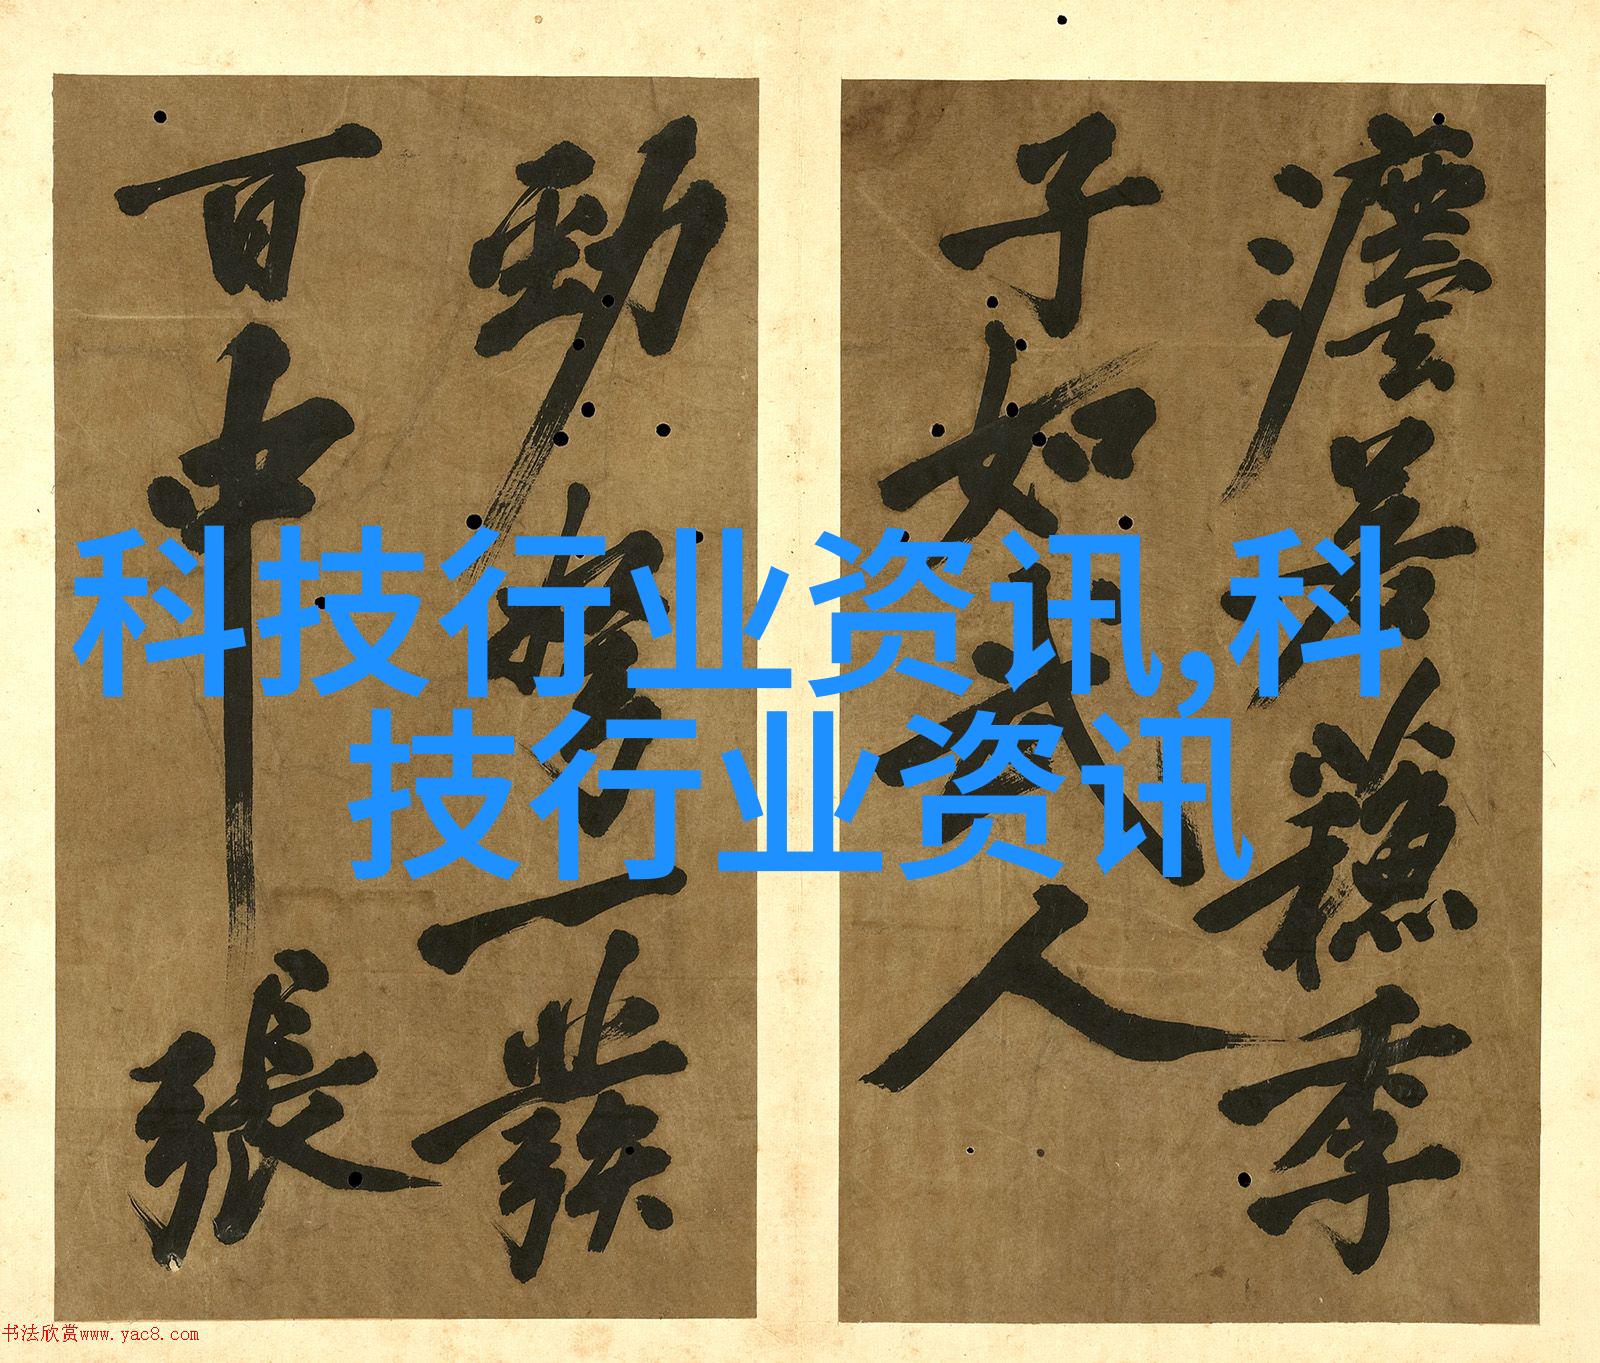 科技行业资讯,科
技行业资讯
季
子如武人
勁一發
百中張
书法欣赏www.yac8.com